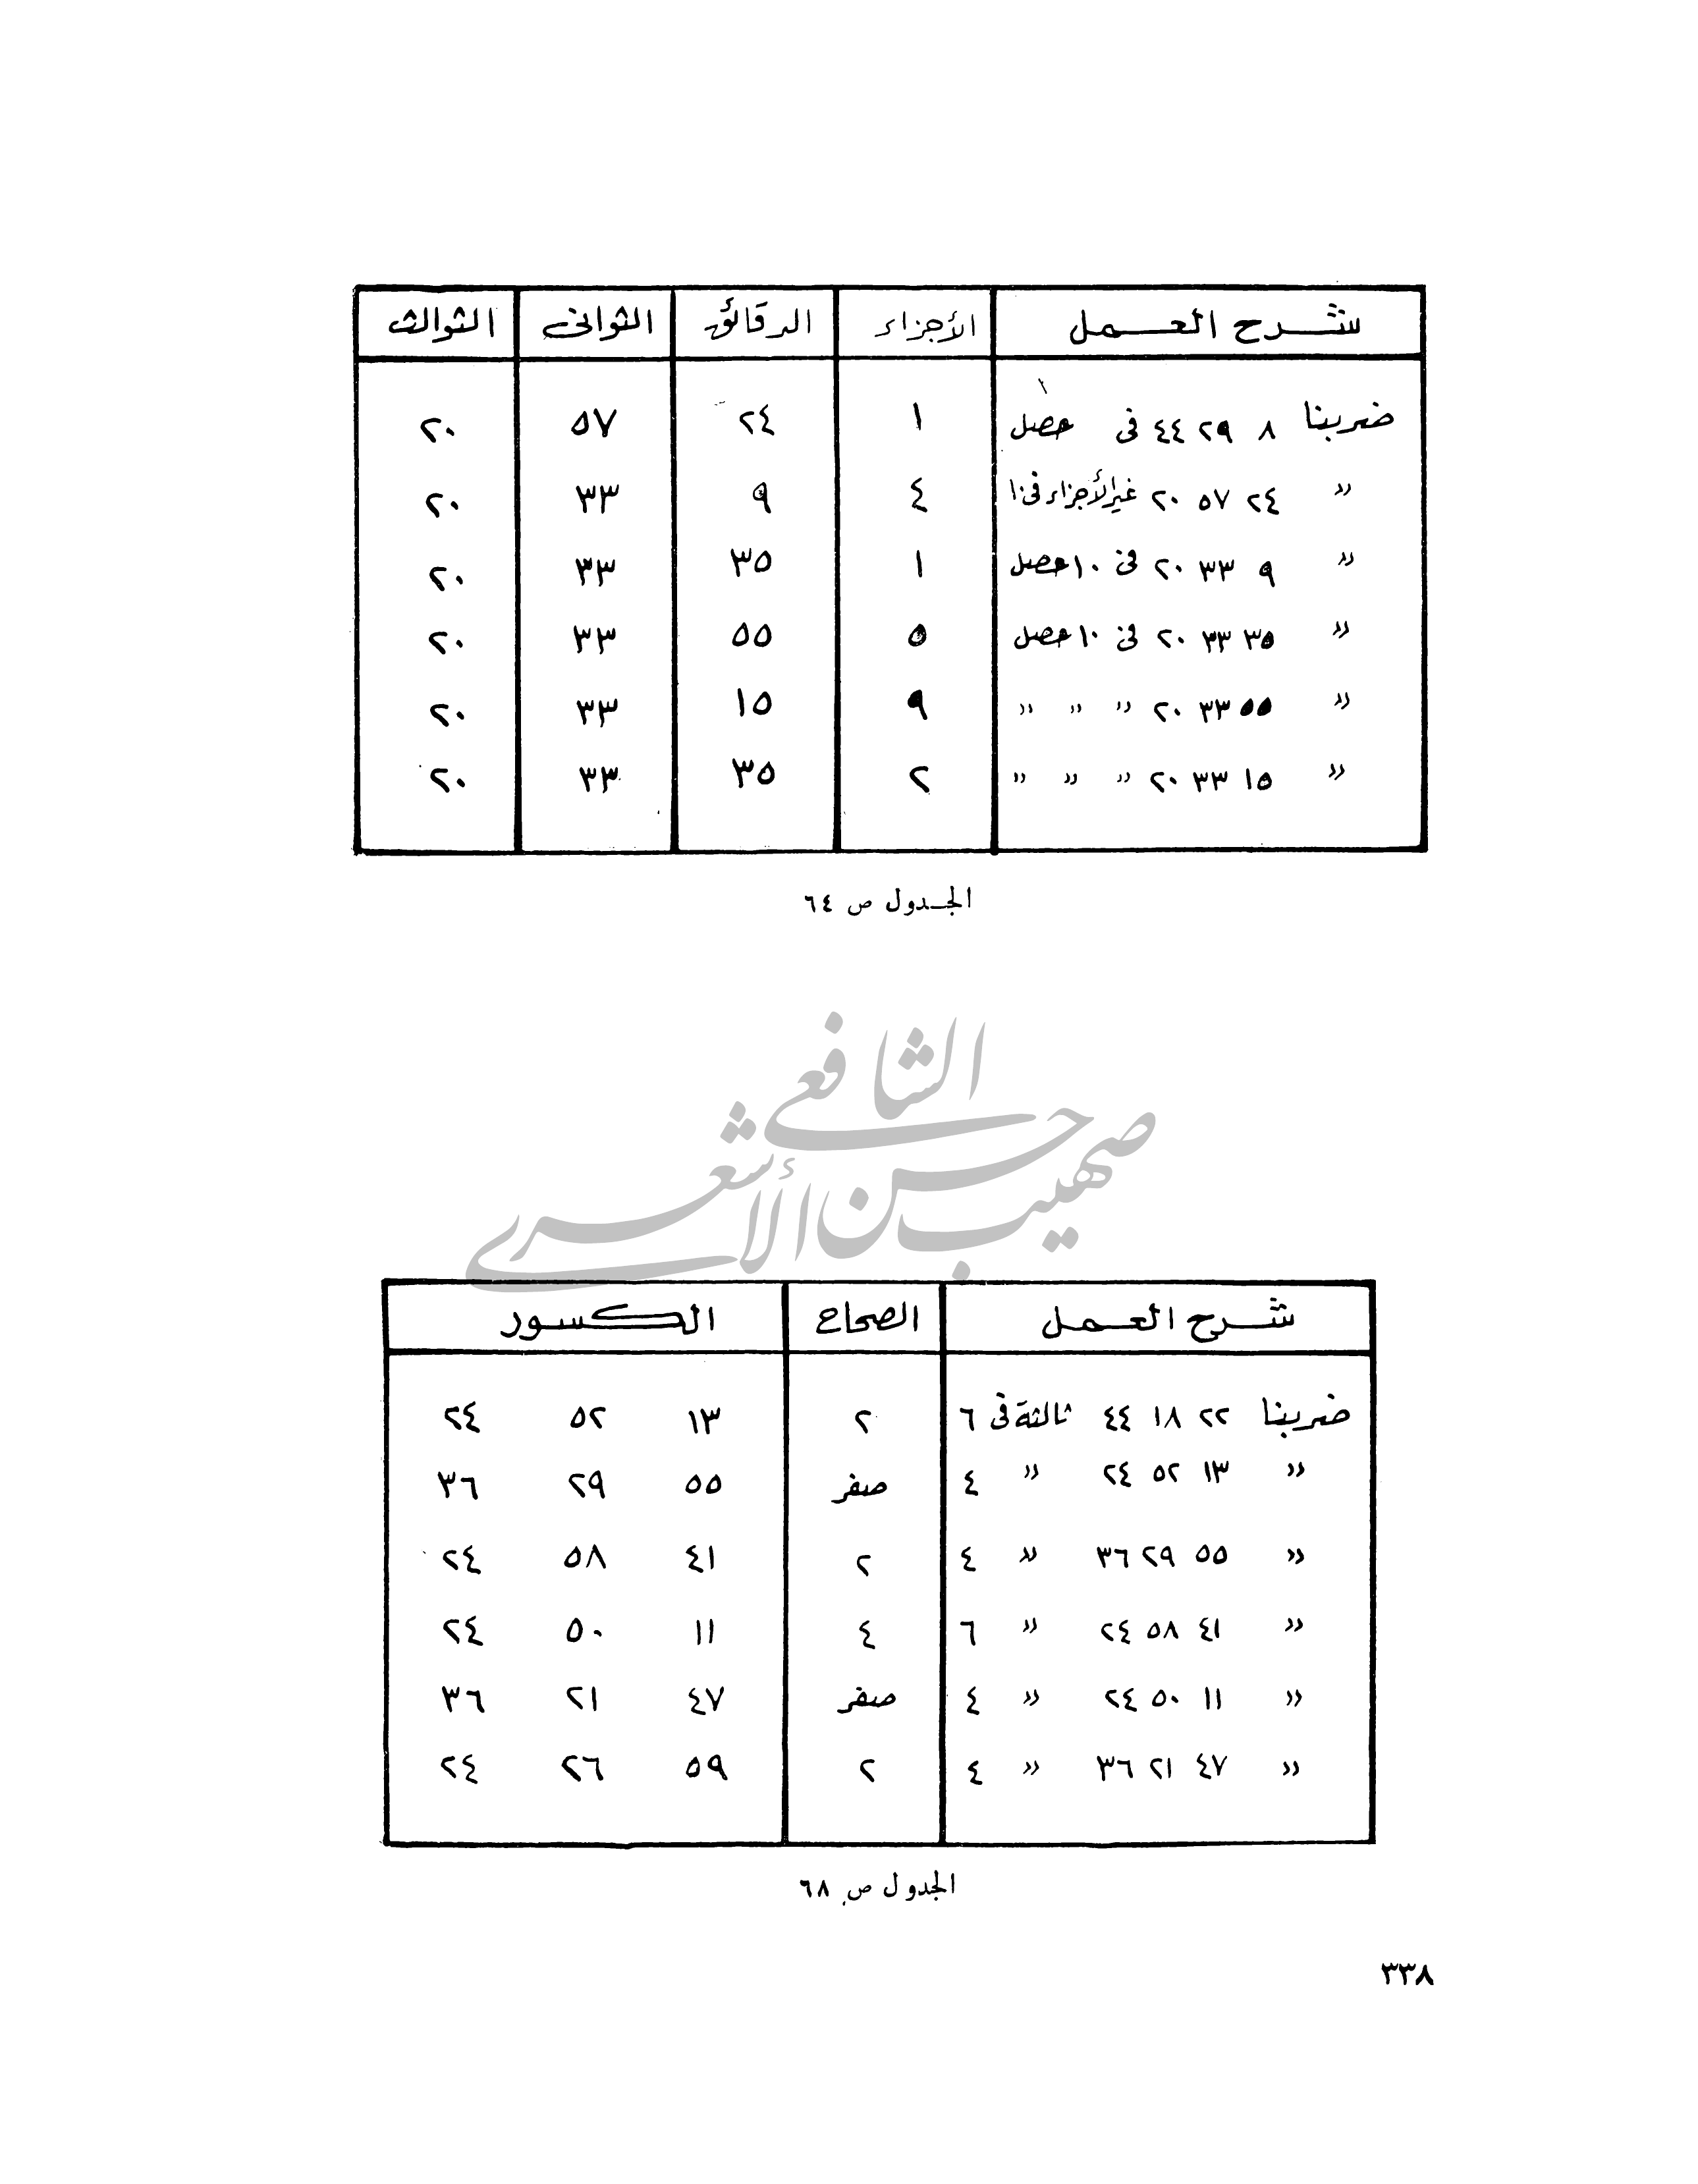 شرح العمل الأجزاء الدقائق الثواني الثوالث
ضربنا ٨ ٢٩ ٤٤ في حصل ١ ٢٤ ٥٧ ٢٠
〃 ٢٤ ٥٧ ٢٠ غير الأجزاء في ١٠ ٤ ٩ ٣٣ ٢٠
〃 ٩ ٣٣ ٢٠ في ١٠ حصل ١ ٣٥ ٣٣ ٢٠
〃 ٣٥ ٣٣ ٢٠ في ١٠ حصل ٥ ٥٥ ٣٣ ٢٠
〃 ٥٥ ٣٣ ٢٠ 〃 〃 〃 ٩ ١٥ ٣٣ ٢٠
〃 ١٥ ٣٣ ٢٠ 〃 〃 〃 ٢ ٣٥ ٣٣ ٢٠
الجدول ص ٦٤
الشافعي
صهيب حسن الأشعري
شرح العمل الصحاح الكسور
ضربنا ٢٢ ١٨ ٤٤ ثالثة في ٦ ٢ ١٣ ٥٢ ٢٤
〃 ١٣ ٥٢ ٢٤ 〃 ٤ صفر ٥٥ ٢٩ ٣٦
〃 ٥٥ ٢٩ ٣٦ 〃 ٤ ٢ ٤١ ٥٨ ٢٤
〃 ٤١ ٥٨ ٢٤ 〃 ٦ ٤ ١١ ٥٠ ٢٤
〃 ١١ ٥٠ ٢٤ 〃 ٤ صفر ٤٧ ٢١ ٣٦
〃 ٤٧ ٢١ ٣٦ 〃 ٤ ٢ ٥٩ ٢٦ ٢٤
الجدول ص ٦٨
٣٣٨